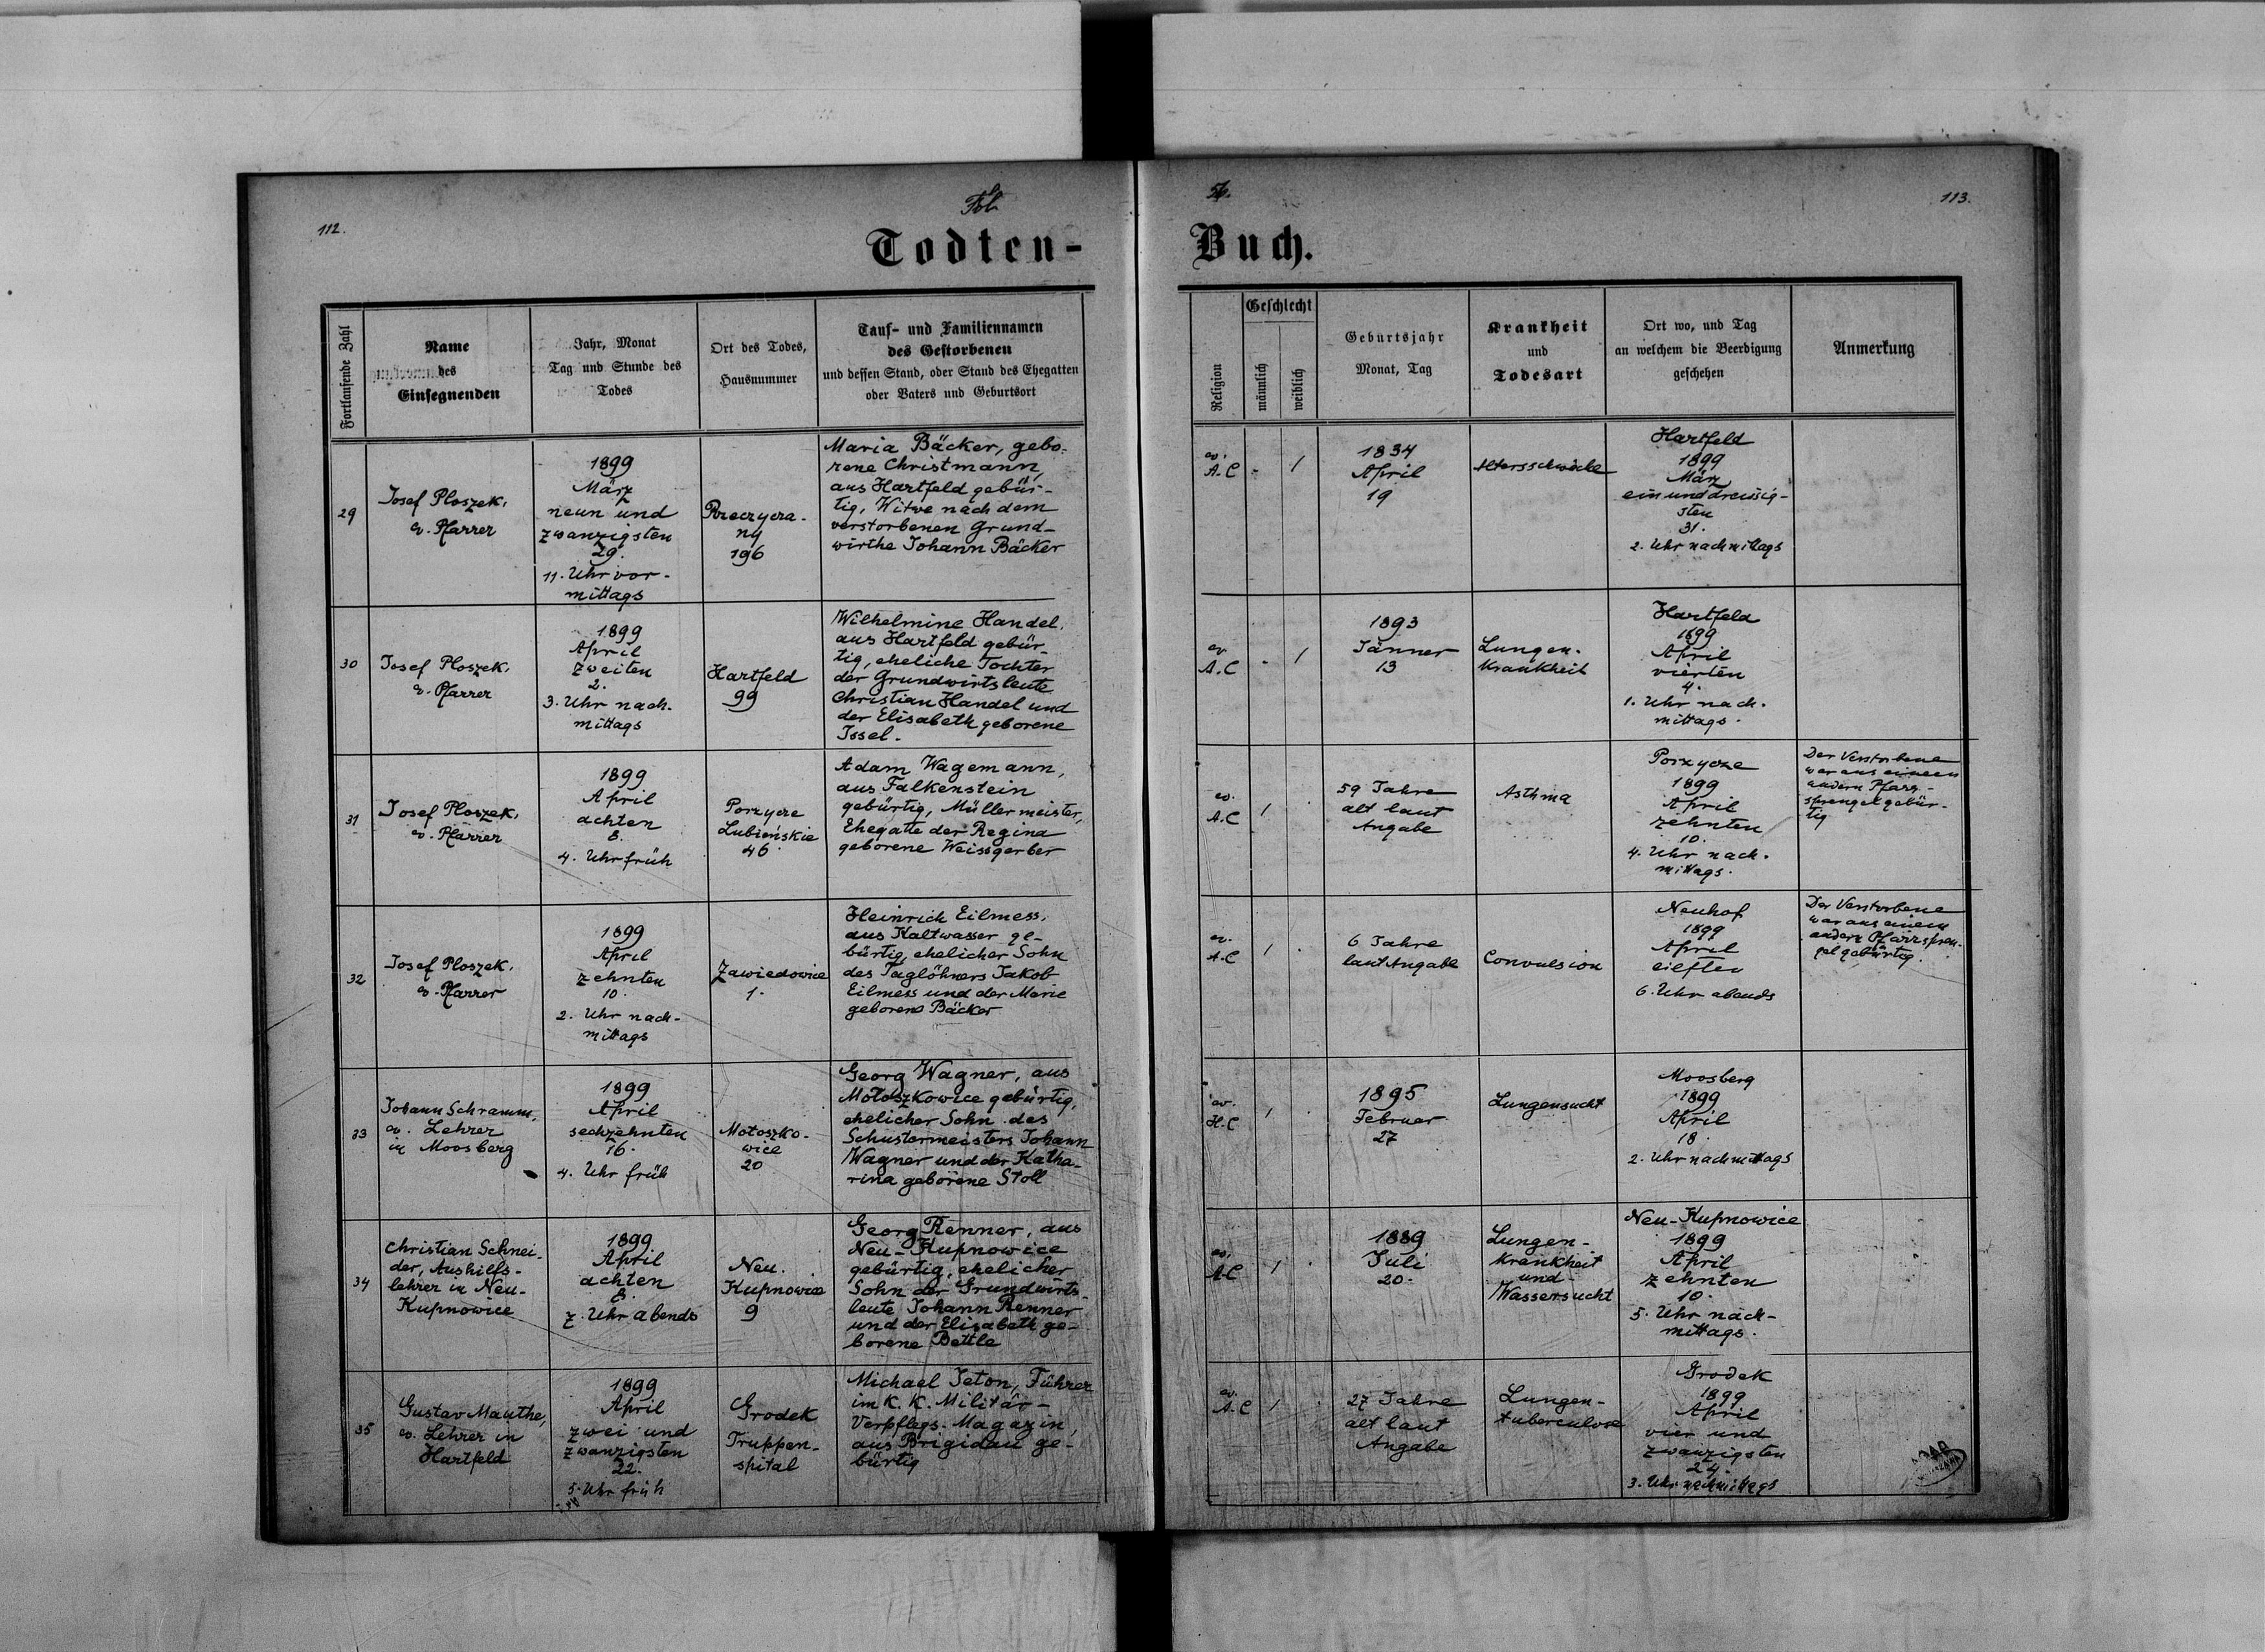 112.
Fol.
56.
113.
Todten-Buch.
Fortlaufende Zahl
Name
des
Einsegnenden
Jahr, Monat
Tag und Stunde des
Todes
Ort des Todes,
Hausnummer
Tauf- und Familiennamen
des Gestorbenen
und dessen Stand, oder Stand des Ehegatten
oder Vaters und Geburtsort
Religion
Geschlecht
männlich
weiblich
Geburtsjahr
Monat, Tag
Krankheit
und
Todesart
Ort wo, und Tag
an welchem die Beerdigung
geschehen
Anmerkung
29
Josef Ploszek,
ev. Pfarrer
1899
März
neun und
zwanzigsten
29.
11. Uhr vor-
mittags
196
Maria Bäcker, gebo-
rene Christmann,
aus Hartfeld gebür-
tig, Witwe nach dem
verstorbenen Grund-
wirthe Johann Bäcker
ev.
A.C
-
1
1834
April
19
Altersschwäche
Hartfeld
1899
März
ein und dreissig-
sten
31.
2. Uhr nachmittags
30
Josef Ploszek,
ev. Pfarrer
1899
April
zweiten
2.
3. Uhr nach-
mittags
Hartfeld
99
Wilhelmine Handel,
aus Hartfeld gebür-
tig, eheliche Tochter
der Grundwirtsleute
Christian Handel und
der Elisabeth geborene
Issel.
ev
A.C
-
1
1893
Jänner
13
Lungen-
krankheit
Hartfeld
1899
April
vierten
4.
1. Uhr nach-
mittags.
31
Josef Ploszek,
ev. Pfarrer
1899
April
achten
8.
4. Uhr früh
Porzycze
Lubieńskie
46
Adam Wagemann,
aus Falkenstein
gebürtig, Müllermeister,
Ehegatte der Regina
geborene Weissgerber
ev.
A.C
1
59 Jahre
alt laut
Angabe
Asthma
Porzycze
1899
April
zehnten
10.
4. Uhr nach-
mittags.
Der Verstorbene
war aus einem
andern Pfarr-
sprengel gebür-
tig
32
Josef Ploszek,
ev. Pfarrer
1899
April
zehnten
10.
2. Uhr nach-
mittags
Zawiedowice
1.
Heinrich Eilmess,
aus Kaltwasser ge-
bürtig, ehelicher Sohn
des Taglöhners Jakob
Eilmess und der Marie
geborene Bäcker
ev.
A.C
1
6 Jahre
laut Angabe
Convulsion
Neuhof
1899
April
eilften
6. Uhr abends
Der Verstorbene
war aus einem
andern Pfarrspren-
gel gebürtig.
33
Johann Schramm,
ev. Lehrer
in Moosberg
1899
April
sechzehnten
16.
4. Uhr früh
Motoszko-
wice
20
Georg Wagner, aus
Motoszkowice gebürtig,
ehelicher Sohn des
Schustermeisters Johann
Wagner und der Katha-
rina geborene Stoll
ev.
H.C
1
1895
Februar
27
Lungensucht
Moosberg
1899
April
18.
2. Uhr nachmittags
34
Christian Schnei-
der, Aushilfs-
lehrer in Neu-
Kupnowice
1899
April
achten
8.
7. Uhr abends
Neu-
Kupnowice
9
Georg Renner, aus
Neu-Kupnowice
gebürtig, ehelicher
Sohn der Grundwirts-
leute Johann Renner
und der Elisabeth ge-
borene Bettle
ev.
A.C
1
1889
Juli
20.
Lungen-
krankheit
und
Wassersucht
Neu-Kupnowice
1899
April
zehnten
10.
5. Uhr nach-
mittags.
35
Gustav Mauthe,
ev. Lehrer in
Hartfeld
1899
April
zwei und
zwanzigsten
22.
5. Uhr früh
Grodek
Truppen-
spital
Michael Jeton, Führer
im K. K. Militär-
Verpflegs-Magazin,
aus Brigidau ge-
bürtig
ev.
A.C
1
27 Jahre
alt laut
Angabe
Lungen-
tuberculose
Grodek
1899
April
vier und
zwanzigsten
24.
3. Uhr nachmittags